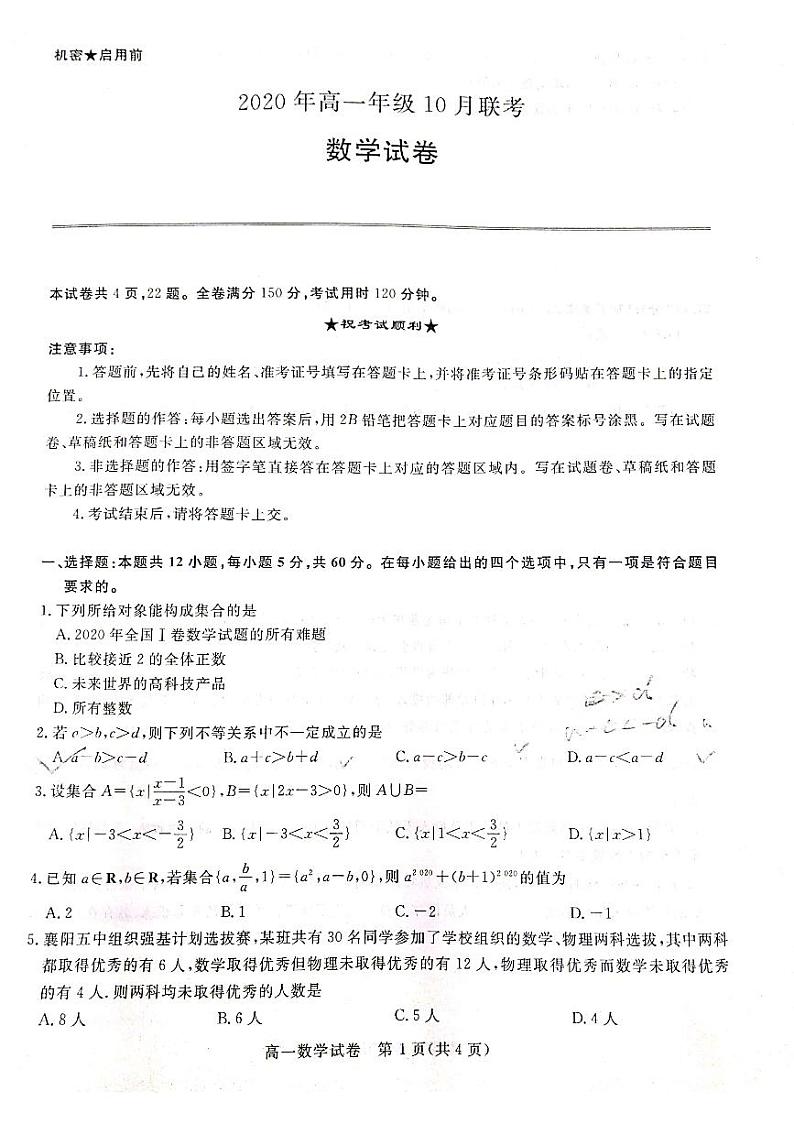 机密★启用前
2020年高一年级10月联考
数学试卷
本试卷共4页,22题。全卷满分150分,考试用时120分钟。
★祝考试顺利★
注意事项:
1.答题前,先将自己的姓名、准考证号填写在答题卡上,并将准考证号条形码贴在答题卡上的指定
位置。
2.选择题的作答:每小题选出答案后,用2B铅笔把答题卡上对应题目的答案标号涂黑。写在试题
卷、草稿纸和答题卡上的非答题区域无效。
3.非选择题的作答:用签字笔直接答在答题卡上对应的答题区域内。写在试题卷、草稿纸和答题
卡上的非答题区域无效。
4.考试结束后,请将答题卡上交。
一、选择题:本题共12小题,每小题5分,共60分。在每小题给出的四个选项中,只有一项是符合题目
要求的。
1.下列所给对象能构成集合的是
A.2020年全国Ⅰ卷数学试题的所有难题
B.比较接近2的全体正数
C.未来世界的高科技产品
D.所有整数
c>d
2.若a>b,c>d,则下列不等关系中不一定成立的是
a-c<-d a
A.a-b>c-d B.a+c>b+d C.a-c>b-c D.a-c<a-d
3.设集合A={x|\frac{x-1}{x-3}<0},B={x|2x-3>0},则A∪B=
A.{x|-3<x<-\frac{3}{2}} B.{x|-3<x<\frac{3}{2}} C.{x|1<x<\frac{3}{2}} D.{x|x>1}
4.已知a∈R,b∈R,若集合{a,\frac{b}{a},1}={a²,a-b,0},则a²⁰²⁰+(b+1)²⁰²⁰的值为
A.2 B.1 C.-2 D.-1
5.襄阳五中组织强基计划选拔赛,某班共有30名同学参加了学校组织的数学、物理两科选拔,其中两科
都取得优秀的有6人,数学取得优秀但物理未取得优秀的有12人,物理取得优秀而数学未取得优秀
的有4人.则两科均未取得优秀的人数是
A.8人 B.6人 C.5人 D.4人
高一数学试卷 第1页(共4页)